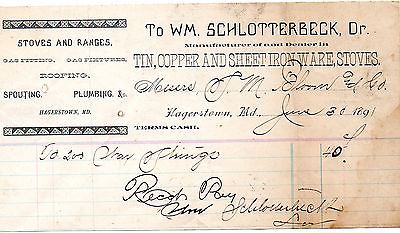 To WM. SCHLOTTERBECK, Dr.
STOVES AND RANGES,
GAS FITTING, GAS FIXTURES,
ROOFING,
SPOUTING, PLUMBING, &c.
HAGERSTOWN, MD.
Manufacturer of and Dealer in
TIN, COPPER AND SHEET IRON WARE, STOVES.
Messrs J. M. Bloom & Co.
Hagerstown, Md. June 30 1891
TERMS CASH.
To 200 40
Recd Pay
Wm Schlotterbeck